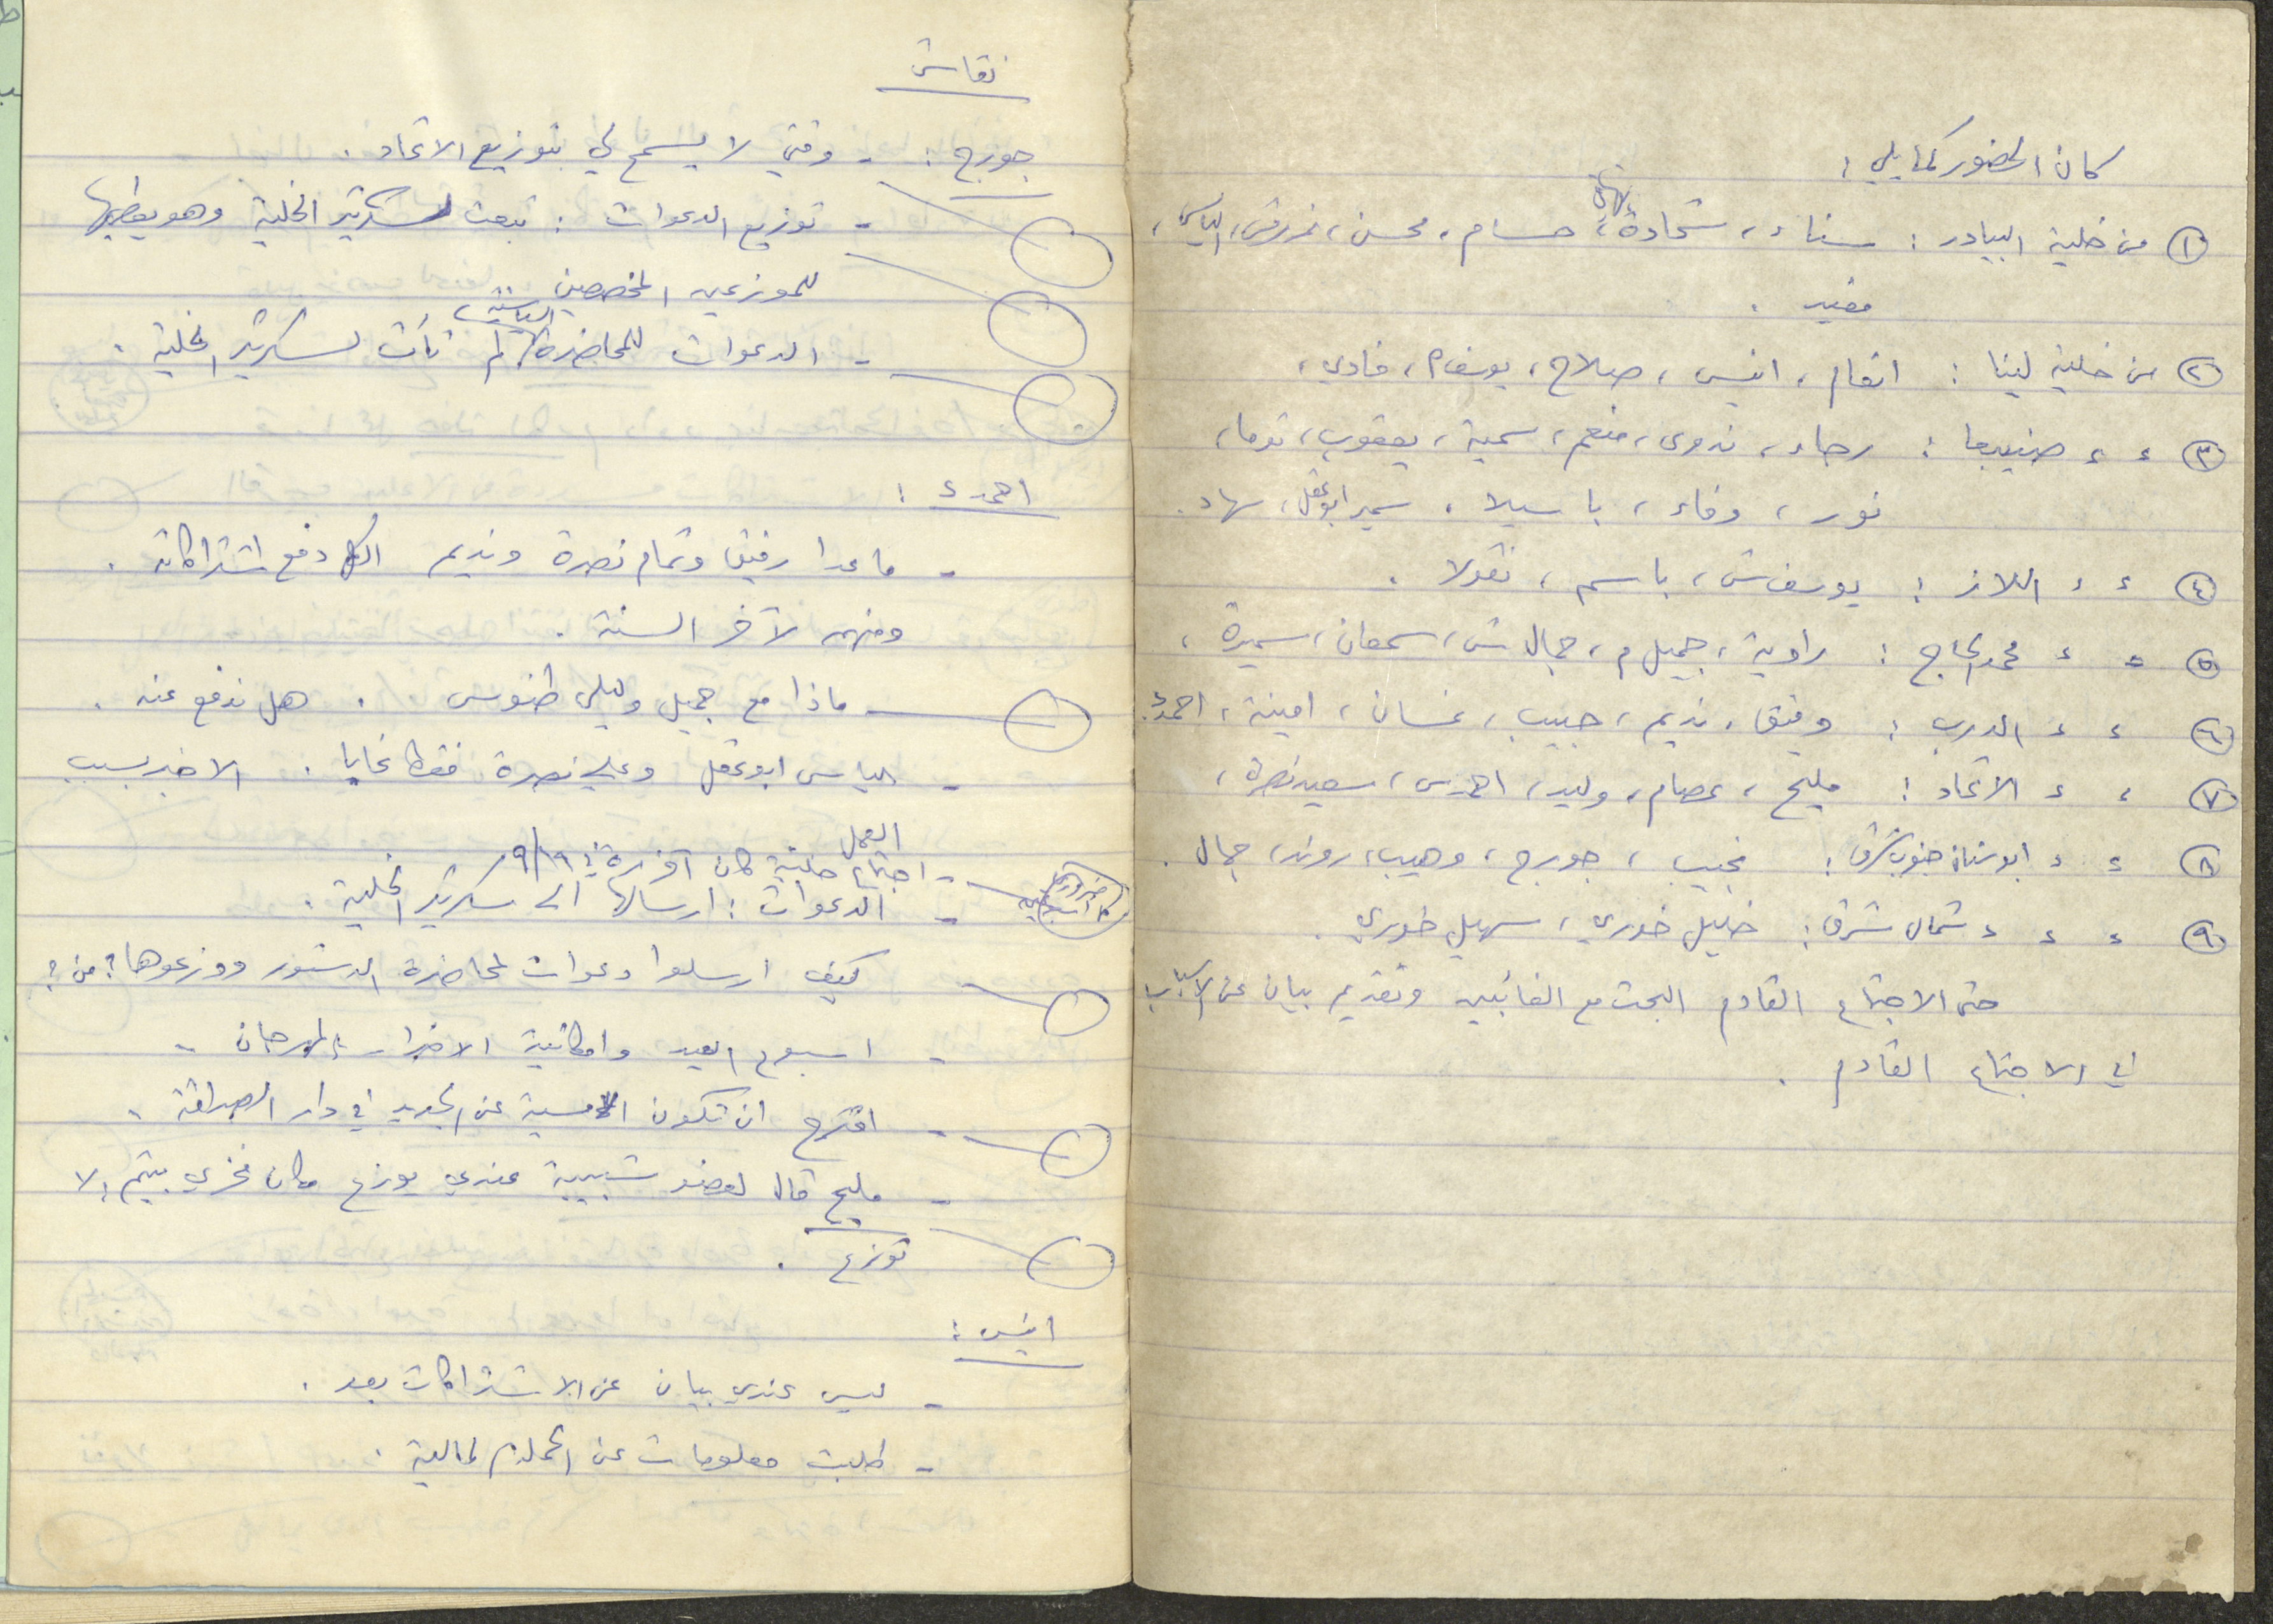 كان الحضور كما يلي :
١ من خلية البيادر : سناء ، شحادة ، حسام ، محسن ، نمر ش ، الياس ،
مفيد .
٢ من خلية لينا : انعام ، انيس ، صلاح ، يوسف م ، فادي ،
٣ ء ء : رجاء ، ندوى ، منعم ، سمية ، يعقوب ، توما ،
نور ، وفاء ، باسيلا ، سمير ابو عقل ، سهاد .
٤ ء ء اللاز : يوسف ش ، باسم ، نقولا .
٥ ء ء محمد الحاج : راوية ، جميل م ، جمال ش ، سمعان ، سميرة ،
٦ ء ء الدرب : وفيق ، نديم ، حبيب ، غسان ، امينة ، احمد ء .
٧ ء ء الاتحاد : مليح ، عصام ، وليد ، احمد س ، سعيد نصرة ،
٨ ء ء ابو سنان جنوب شرق : نجيب ، جورج ، وهيب ، روند ، جمال .
٩ ء ء ء شمال شرق : خليل خوري ، سهيل خوري .
حتى الاجتماع القادم البحث مع الغائبين وتقديم بيان عن الاسباب
في الاجتماع القادم .
نقاش
جورج : - وقتي لا يسمح لي بتوزيع الاتحاد .
- توزيع الدعوات : تبعث لسكرتير الخلية وهو يعطيها
للموزعين المخصصين
- الدعوات للمحاضرة السياسية لم تأت لسكرتير الخلية .
احمد ء :
- ما عدا رفيق وتمام نصرة ونديم الكل دفع اشتراكاته .
ومنهم لآخر السنة .
- ماذا مع جميل وليلى طنوس . هل ندفع عنه .
- الياس ابو عقل وعلي نصرة فقط غابا . الاخير بسبب
العمل
- اجتماع خلية كان آخر مرة ١٩/٩
- الدعوات : ارسالها الى سكرتير الخلية .
كيف ارسلوا دعوات لمحاضرة الدستور ووزعوها ؟ من ؟
- اسبوع العيد وامكانية الاضراب المهرجان -
- اقترح ان تكون الامسية عن الجديد في دار الصداقة .
- مليح قال لعضو شبيبة عندي يوزع مكان فخري بيتم ! لا
توزع .
انيس :
- ليس عندي بيان عن الاشتراكات بعد .
- طلبت معلومات عن الحملة المالية .